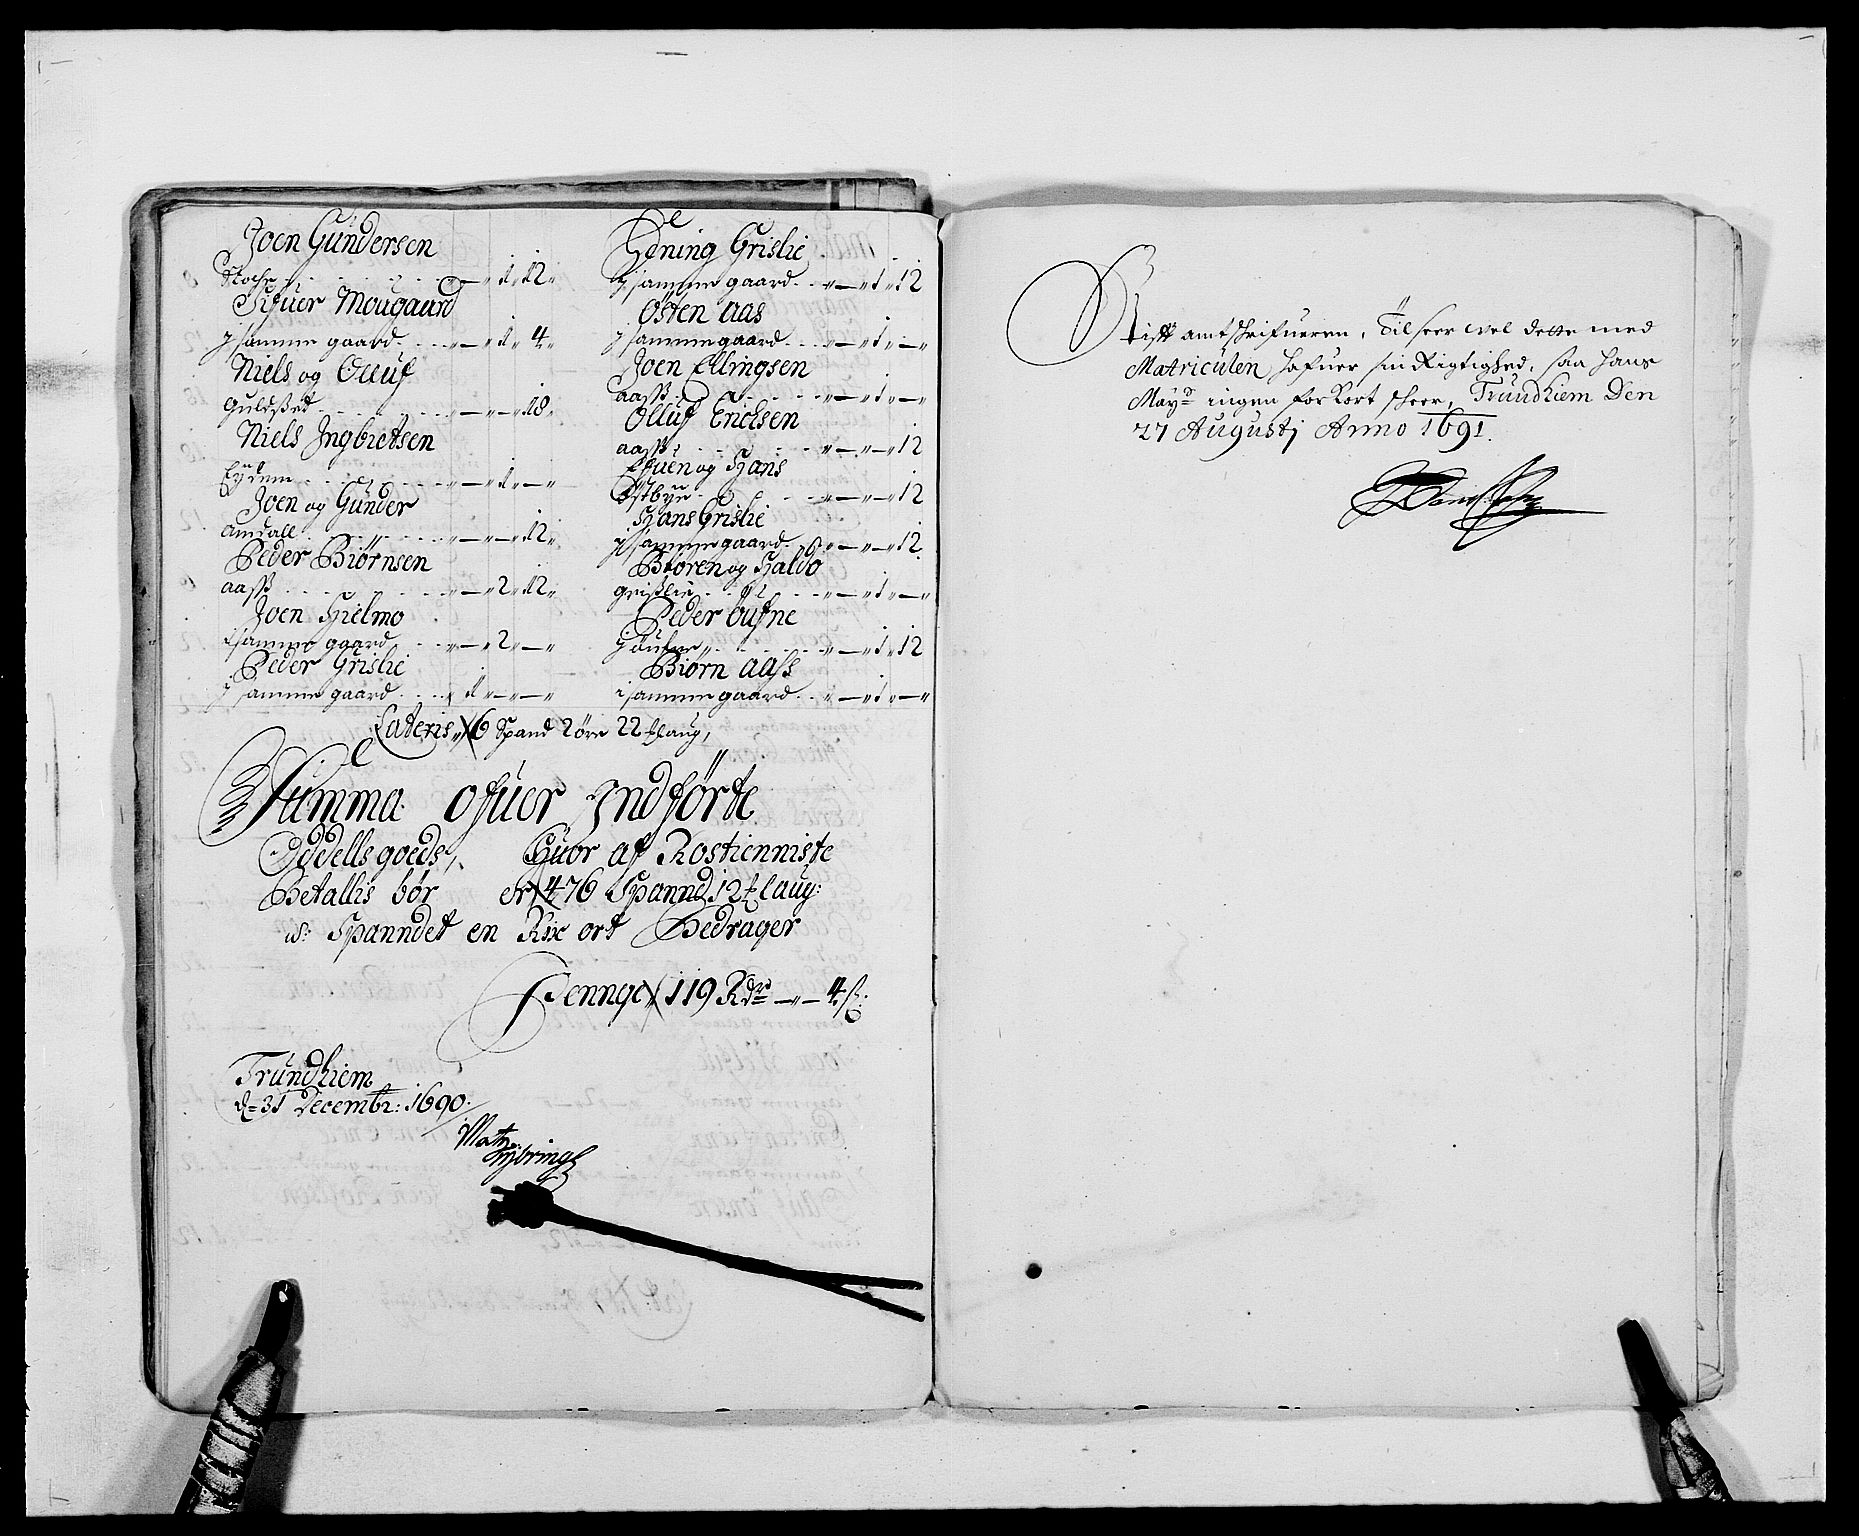 Joen Gundersen
Stochr . . . . — „ 1 „ 12 „
Sifuer Mougaard
j samme gaard . . . „ — „ 1 „ 4 „
Niels og Olluf
Guldset . . . . „ — „ — „ 18 „
Niels Jngbretsen
Eydem . . . . „ — „ 1 „ — „
Joen og Gunder
Amdall . . . . „ — „ — „ 12 „
Peder Biørnsen
aass . . . . „ — „ 2 „ 12 „
Joen Hielmo
j samme gaard . . . „ — „ 2 „ — „
Peder Grislie
j samme gaard . . . „ 1 „ — „ — „
Hening Grislie
j samme gaard . . „ — „ 1 „ 12
Østen aas
j samme gaard . . „ — „ 1 „ — „
Joen Ellingsen
aass . . . . „ — „ 1 „ — „
Olluf Erichsen
aass . . . . „ — „ — „ 12
Efuen og Hans
Østbye . . . . „ — „ — „ 12
Hans Grislie
j samme gaard . . „ — „ — „ 12
Biøren og Haldo
grislie . . . . „ — „ 1 „ — „
Peder öufne
j öufne . . . . „ — „ 1 „ 12
Biørn aass
i samme gaard . . „ — „ 1 „ — „
Lateris „ 6 Spand 2 øre 22 Mlaug,
Summa ofuer Jndførte
Oddells goeds, Huor af Rostienniste
Betallis bør er 476 Spannd 12 Mlaug:
a: Spanndet en Rix ort Bedrager
Pennge 119 Rdr — „ — 4 s:
Trundhiem
d= 31 Decembr: 1690.
Amtschrifueren, Tilseer vel dette med
Matriculen hafuer sin Rigtighed, saa hans
Mayt ingen forkort scheer, Trundhiem Den
27 Augustj Anno 1691.